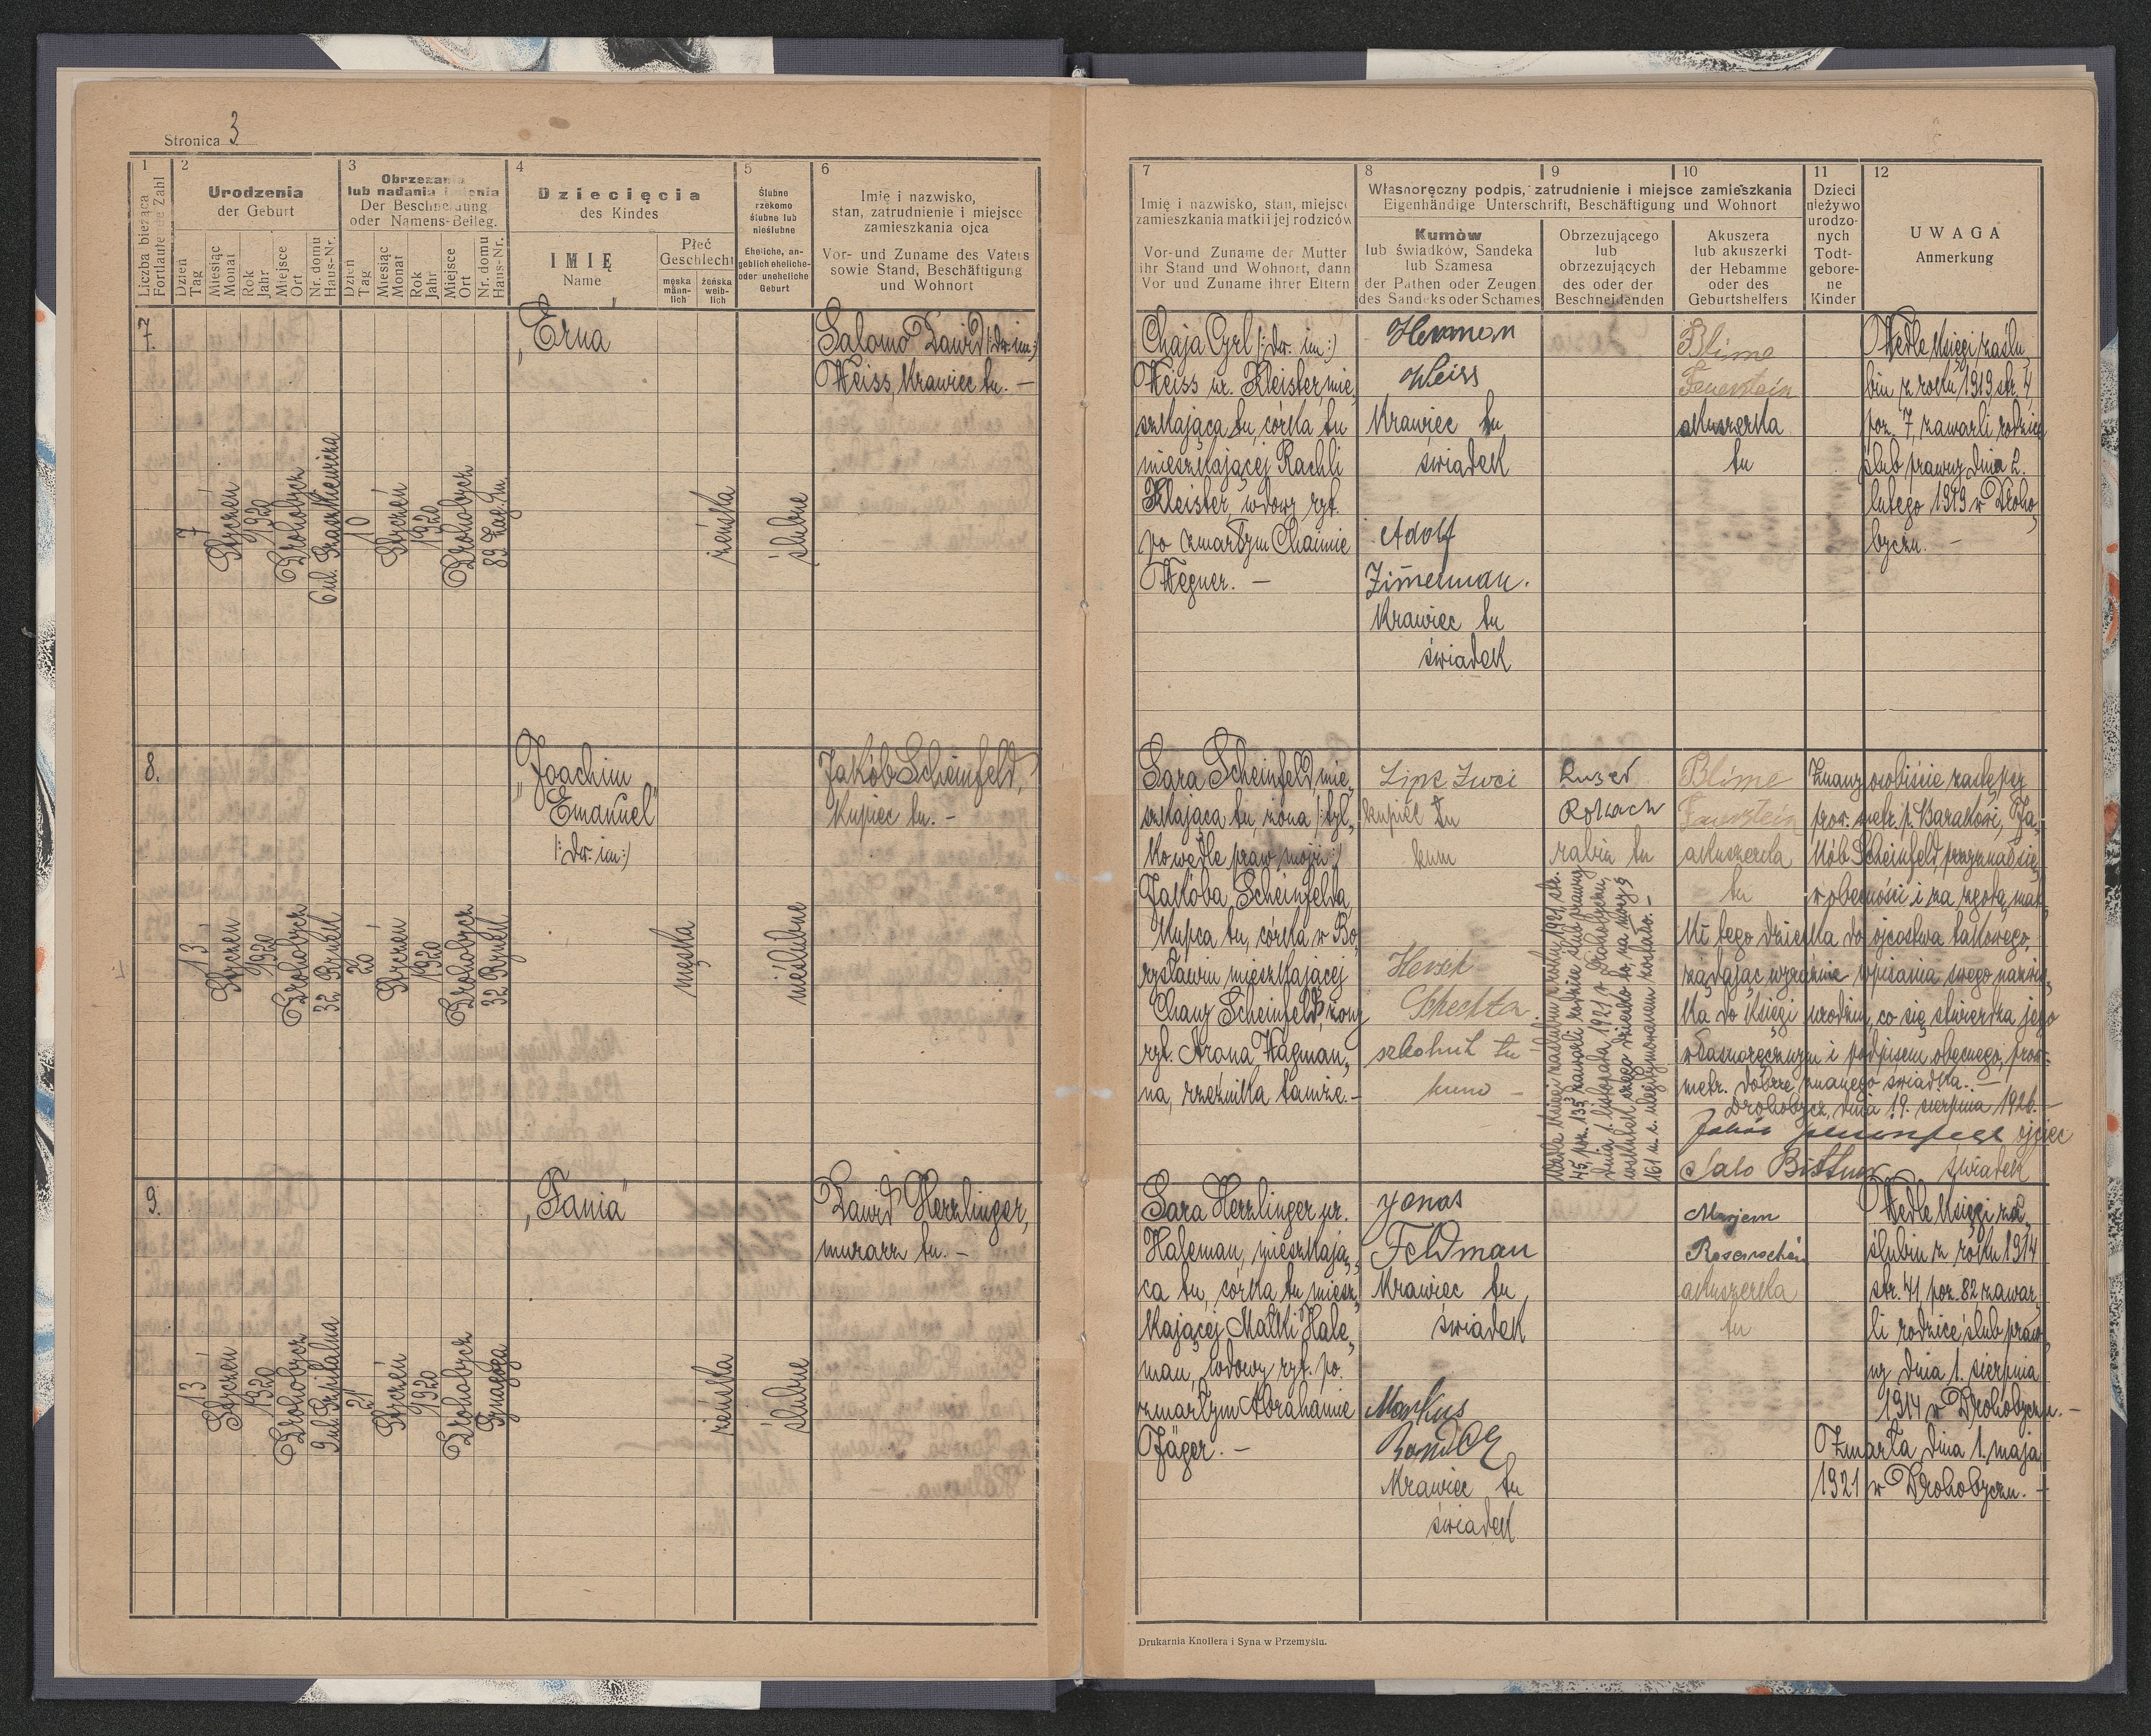 Stronica 3
1
Liczba bieżąca
Fortlaufende Zahl
2
Urodzenia
der Geburt
Dzień
Tag
Miesiąc
Monat
Rok
Jahr
Miejsce
Ort
Nr. domu
Haus-Nr.
3
Obrzezania
lub nadania imienia
Der Beschneidung
oder Namens-Beileg.
Dzień
Tag
Miesiąc
Monat
Rok
Jahr
Miejsce
Ort
Nr. domu
Haus-Nr.
4
Dziecięcia
des Kindes
IMIĘ
Name
Płeć
Geschlecht
męska
männ-
lich
żeńska
weib-
lich
5
Ślubne
rzekomo
ślubne lub
nieślubne
Eheliche, an-
geblich eheliche-
oder uneheliche
Geburt
6
Imię i nazwisko,
stan, zatrudnienie i miejsce
zamieszkania ojca
Vor- und Zuname des Vaters
sowie Stand, Beschäftigung
und Wohnort
7
Imię i nazwisko, stan, miejsce
zamieszkania matki i jej rodziców
Vor-und Zuname der Mutter
ihr Stand und Wohnort, dann
Vor und Zuname ihrer Eltern
8
9
10
Własnoręczny podpis, zatrudnienie i miejsce zamieszkania
Eigenhändige Unterschrift, Beschäftigung und Wohnort
Kumów
lub świadków, Sandeka
lub Szamesa
der Pathen oder Zeugen
des Sandeks oder Schames
Obrzezującego
lub
obrzezujących
des oder der
Beschneidenden
Akuszera
lub akuszerki
der Hebamme
oder des
Geburtshelfers
11
Dzieci
nieżywo
urodzo-
nych
Todt-
gebore-
ne
Kinder
12
UWAGA
Anmerkung
7.
7
Styczeń
1920
Drohobycz
6 ul. Graszkiewicza
10
Styczeń
1920
Drohobycz
89 Zag. m.
„Erna"
żeńska
ślubne
Salomo Dawid (: dw. im :)
Weiss, Krawiec tu. —
Chaja Cyrl (: dw. im :)
Weiss ur. Kleister, mie„
szkająca tu, córka tu
mieszkającej Rachli
Kleister, wdowy ryt.
po zmarłym Chaimie
Wegner. —
Herman
Weiss
Krawiec tu
świadek
Adolf
Zimerman.
Krawiec tu
świadek
Blime
Feuerstein
akuszerka
tu
Wedle Księgi zaślu„
bin z roku 1919 str. 4,
poz. 7, zawarli rodzice
ślub prawny dnia 2.
lutego 1919 w Droho„
byczu. —
8.
13
Styczeń
1920
Drohobycz
32 Rynek
20
Styczeń
1920
Drohobycz
32 Rynek
„Joachim
Emanuel"
(: dw. im :)
męska
nieślubne
Jakób Scheinfeld,
Kupiec tu. —
Sara Scheinfeld, mie„
szkająca tu, żona (: tyl„
ko wedle praw mojż :)
Jakóba Scheinfelda
Kupca tu, córka w Bo„
rysławiu mieszkającej
Chany Scheinfeld, żony
ryt. Arona Wagman„
na, rzeźnika tamże. —
Lipe Zwei
kupiec tu
kum
Hersch
Schechter
szkolnik tu
kumo —
Luzer
Rokach
rabin tu
Wedle Księgi zaślubin z roku 1921 str.
45 poz. 135 zawarli rodzice ślub prawny
dnia 1. listopada 1921 w Drohobyczu,
wskutek czego dziecko to na mocy §
161 u. c. ulegitymowanem zostało. —
Blime
Feuerstein
akuszerka
tu
Znany osobiście zastępcy
prow. metr. p. Barakowi, Ja„
kób Scheinfeld przyznał się
w obecności i za zgodą mat„
ki tego dziecka do ojcostwa takowego,
żądając wyraźnie wpisania swego nazwis„
ka do Księgi urodzin, co się stwierdza jego
własnoręcznym i podpisem obecnego, prow.
metr. dobrze znanego świadka. —
Drohobycz, dnia 19. sierpnia 1920. —
Jakób Scheinfeld ojciec
Salo Bittner świadek
9.
13
Styczeń
1920
Drohobycz
9 ul. Szpitalna
21
Styczeń
1920
Drohobycz
Synagoga
„Fania"
żeńska
ślubne
Dawid Herzlinger,
murarz tu. —
Sara Herzlinger ur.
Haleman, mieszkają„
ca tu, córka tu miesz„
kającej Małki Hale„
man, wdowy ryt. po
zmarłym Abrahamie
Jäger. —
Jonas
Feldman
Krawiec tu
świadek
Markus
Krawiec tu
świadek
Marjem
Rosenschein
akuszerka
tu
Wedle Księgi za„
ślubin z roku 1914
str. 41, poz. 82 zawar„
li rodzice ślub praw„
ny dnia 1. sierpnia
1914 w Drohobyczu. —
Zmarła dnia 1. maja
1921 w Drohobyczu. —
Drukarnia Knollera i Syna w Przemyślu.